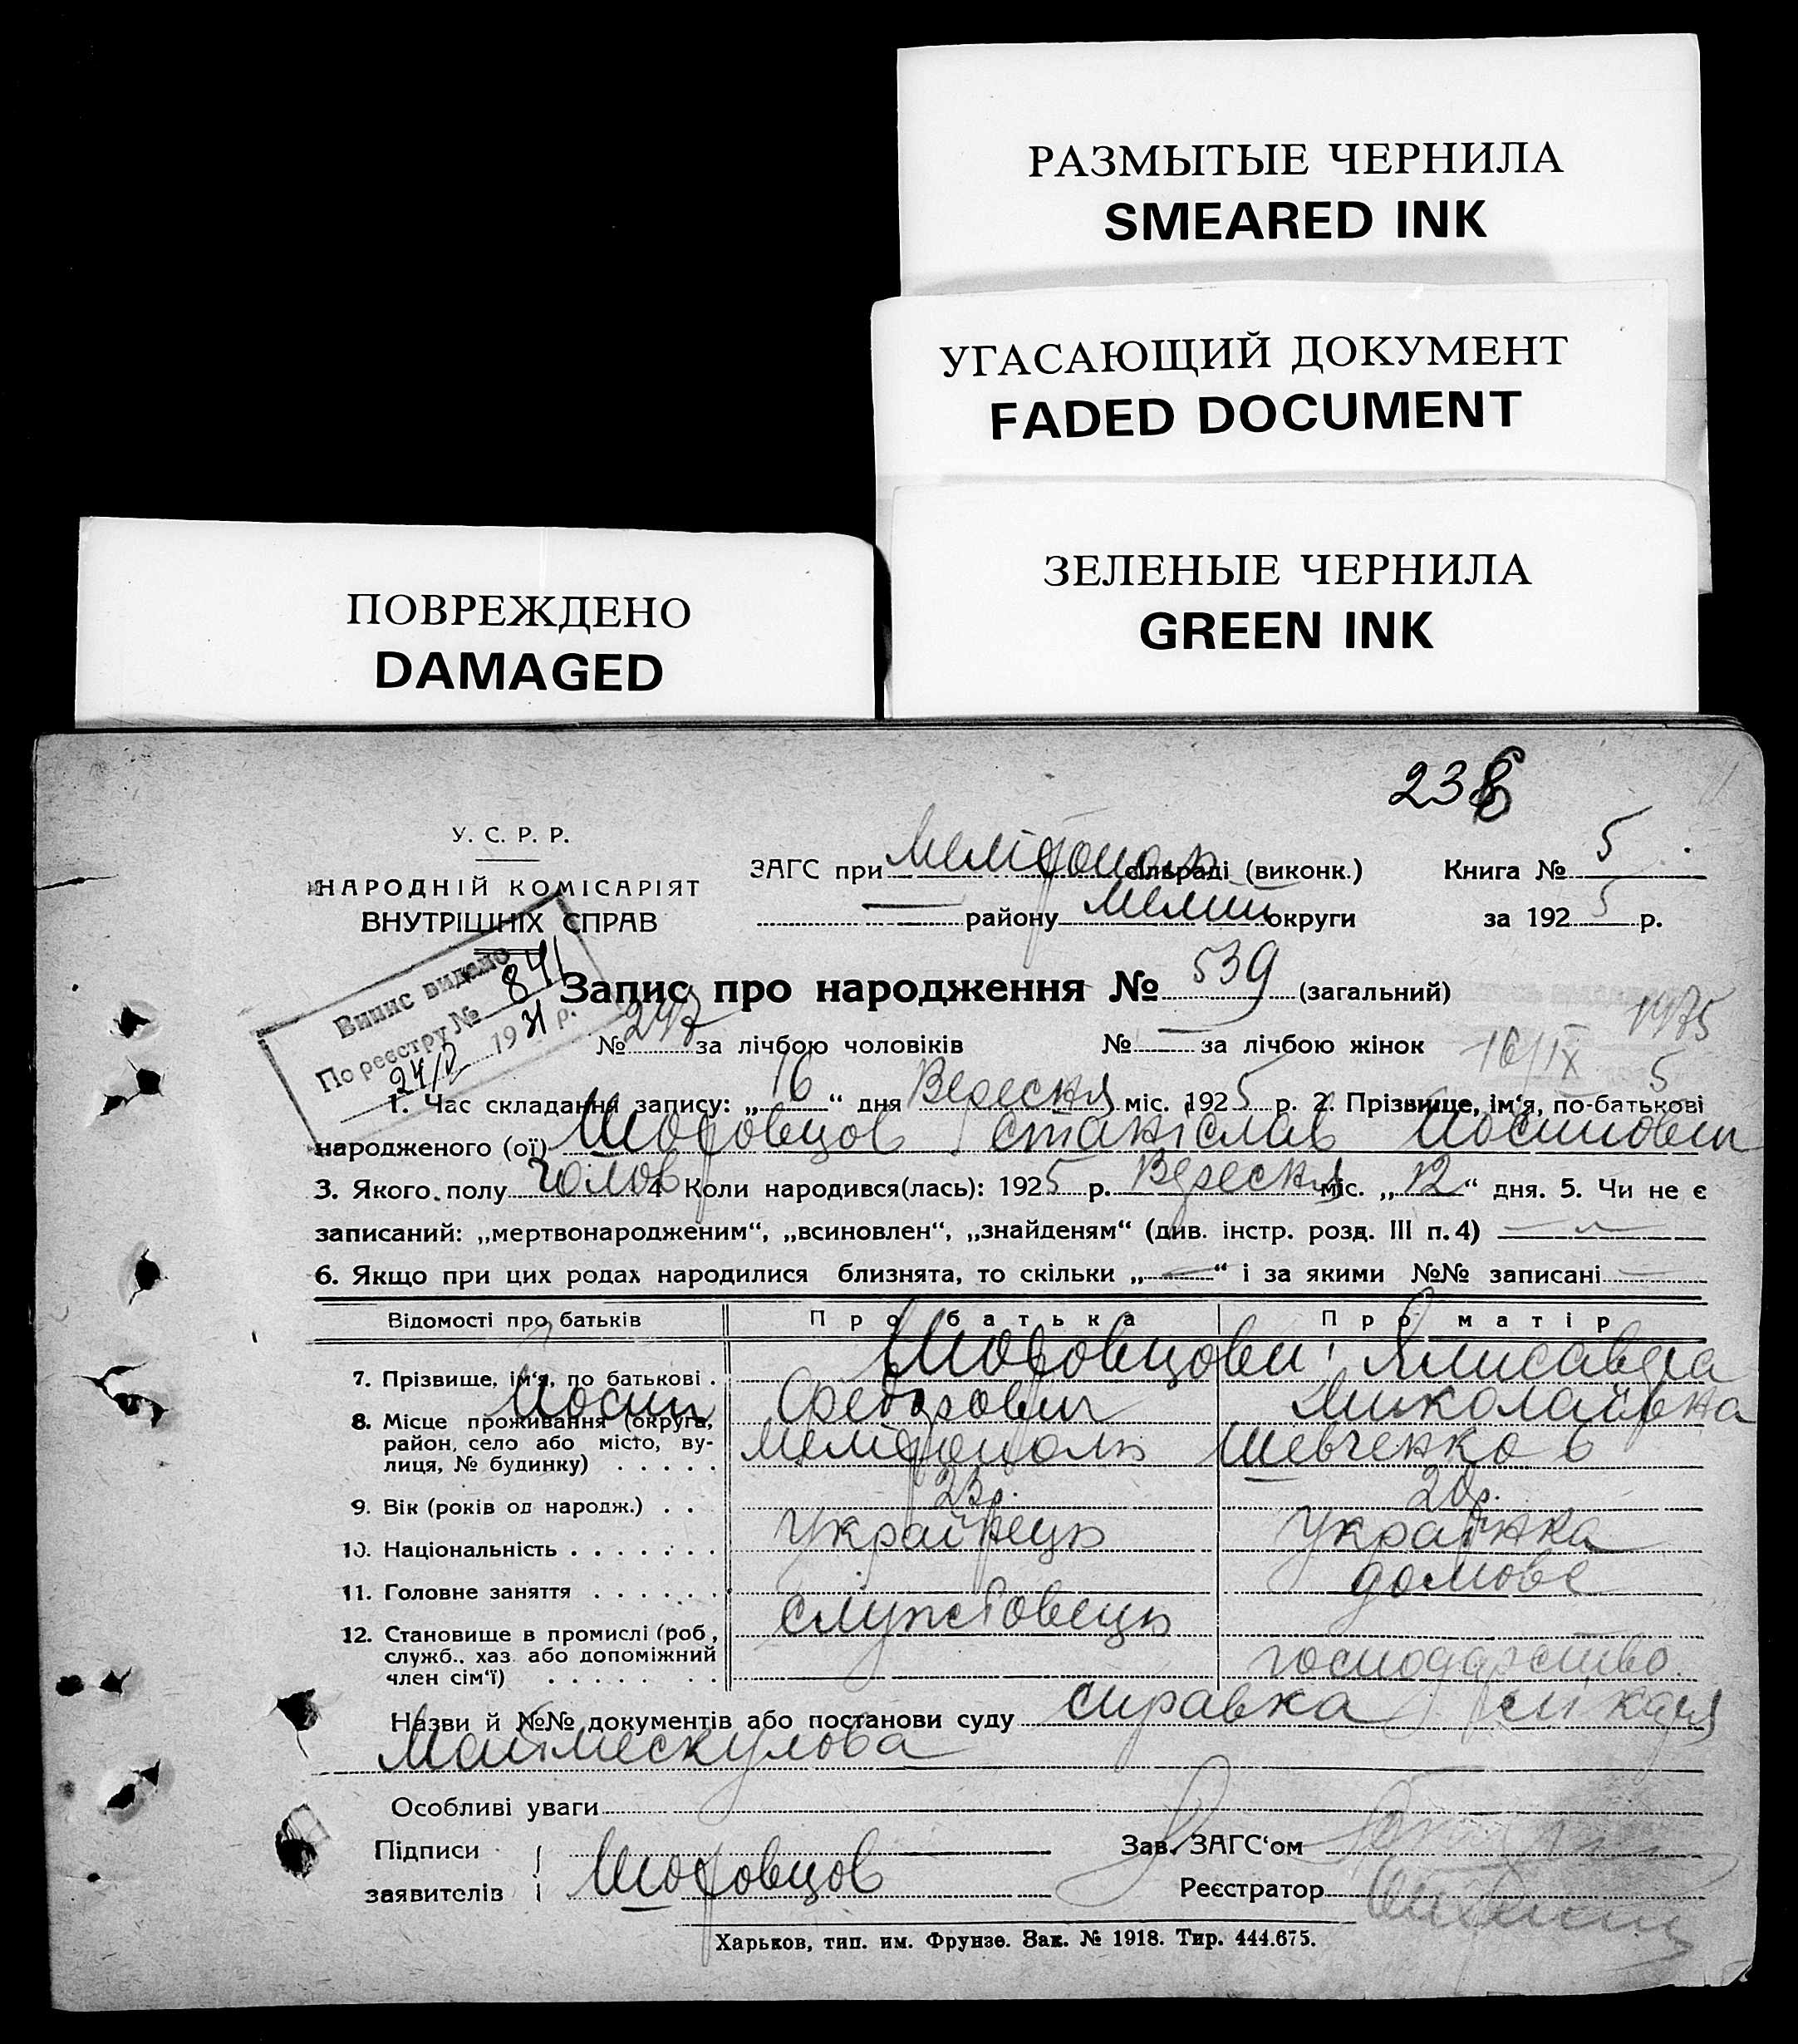 РАЗМЫТЫЕ ЧЕРНИЛА
SMEARED INK
УГАСАЮЩИЙ ДОКУМЕНТ
FADED DOCUMENT
ЗЕЛЕНЫЕ ЧЕРНИЛА
GREEN INK
ПОВРЕЖДЕНО
DAMAGED
У. С. Р. Р.
НАРОДНІЙ КОМІСАРІЯТ
ВНУТРІШНІХ СПРАВ
ЗАГС при Мелітополь сільраді (виконк.) Книга № 5
району Меліт округи за 1925 р.
Випис видано
По реєстру № 841
1931 р.
Запис про народження № 539 (загальний)
№ 297 за лічбою чоловіків № за лічбою жінок
16/IX
1. Час складання запису: „16“ дня Вересня міс. 1925 р. 2. Прізвище, ім'я, по-батькові
народженого (ої) Шотовцов Станіслав Йосипович
3. Якого полу Чолов 4 Коли народився(лась): 1925 р. Вересня міс. „12“ дня. 5. Чи не є
записаний: „мертвонародженим“, „всиновлен“, „знайденям“ (див. інстр. розд. III п. 4)
6. Якщо при цих родах народилися близнята, то скільки „—“ і за якими №№ записані
Відомості про батьків Про батька Про матір
7. Прізвище, ім'я, по батькові . Шотовцови: Йосип Федорович Миколаївна
8. Місце проживання (округа, район, село або місто, вулиця, № будинку) . . . . . Мелітополь Шевченко 6
9. Вік (років од народж.) . . 23 р. 20 р.
10. Національність . . . . . . . Українець Українка
11. Головне заняття . . . . . . домове
12. Становище в промислі (роб, служб., хаз. або допоміжний член сім'ї) . . . . . . . службовець господарство.
Назви й №№ документів або постанови суду справка лікаря
Маймескулова
Особливі уваги
Підписи Зав. ЗАГС'ом
заявителів Шотовцов Реєстратор
Харьков, тип. им. Фрунзе. Зак. № 1918. Тир. 444.675.